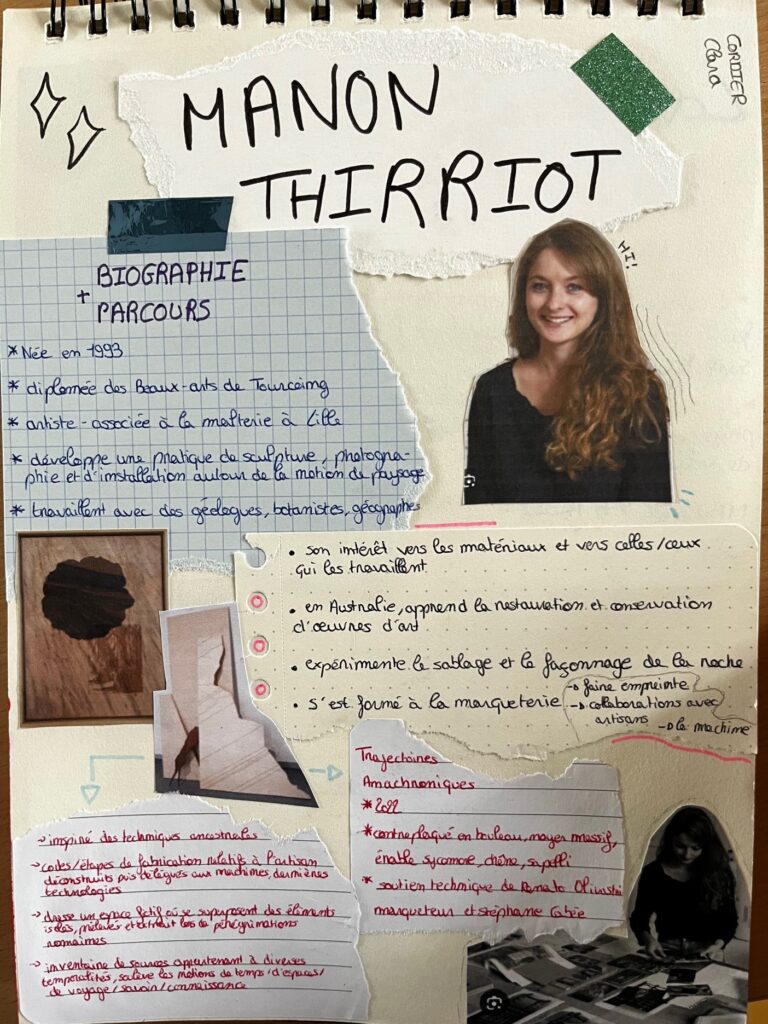 CORDIER
Clara
MANON
THIRRIOT
HI!
BIOGRAPHIE
+ PARCOURS
* Née en 1993
* diplomée des Beaux-arts de Tourcoing
* artiste-associée à la malterie à Lille
* développe une pratique de sculpture, photogra-
phie et d'installation autour de la notion de paysage
* travaillent avec des géologues, botanistes, géographes
• son intérêt vers les matériaux et vers celles/ceux
qui les travaillent
• en Australie, apprend la restauration et conservation
d'œuvres d'art
• expérimente le sablage et le façonnage de la roche
• s'est formé à la marqueterie
→ faire empreinte
→ collaborations avec
artisans → la machine
Trajectoires
Anachroniques
* 2022
* contreplaqué en bouleau, noyer massif,
érable sycomore, chêne, sapelli
* soutien technique de Renato
marqueteur et stéphane
→ inspiré des techniques ancestrales
→ codes/étapes de fabrication relatifs à l'artisan
déconstruits puis délégués aux machines, dernières
technologies
→ dresse un espace fictif où se superposent des éléments
isolés, prélevés et extrait lors de pérégrinations
romaines
→ inventaire de sources appartenant à diverses
temporalités, soulève les notions de temps/d'espaces/
de voyage/savoir/connaissance